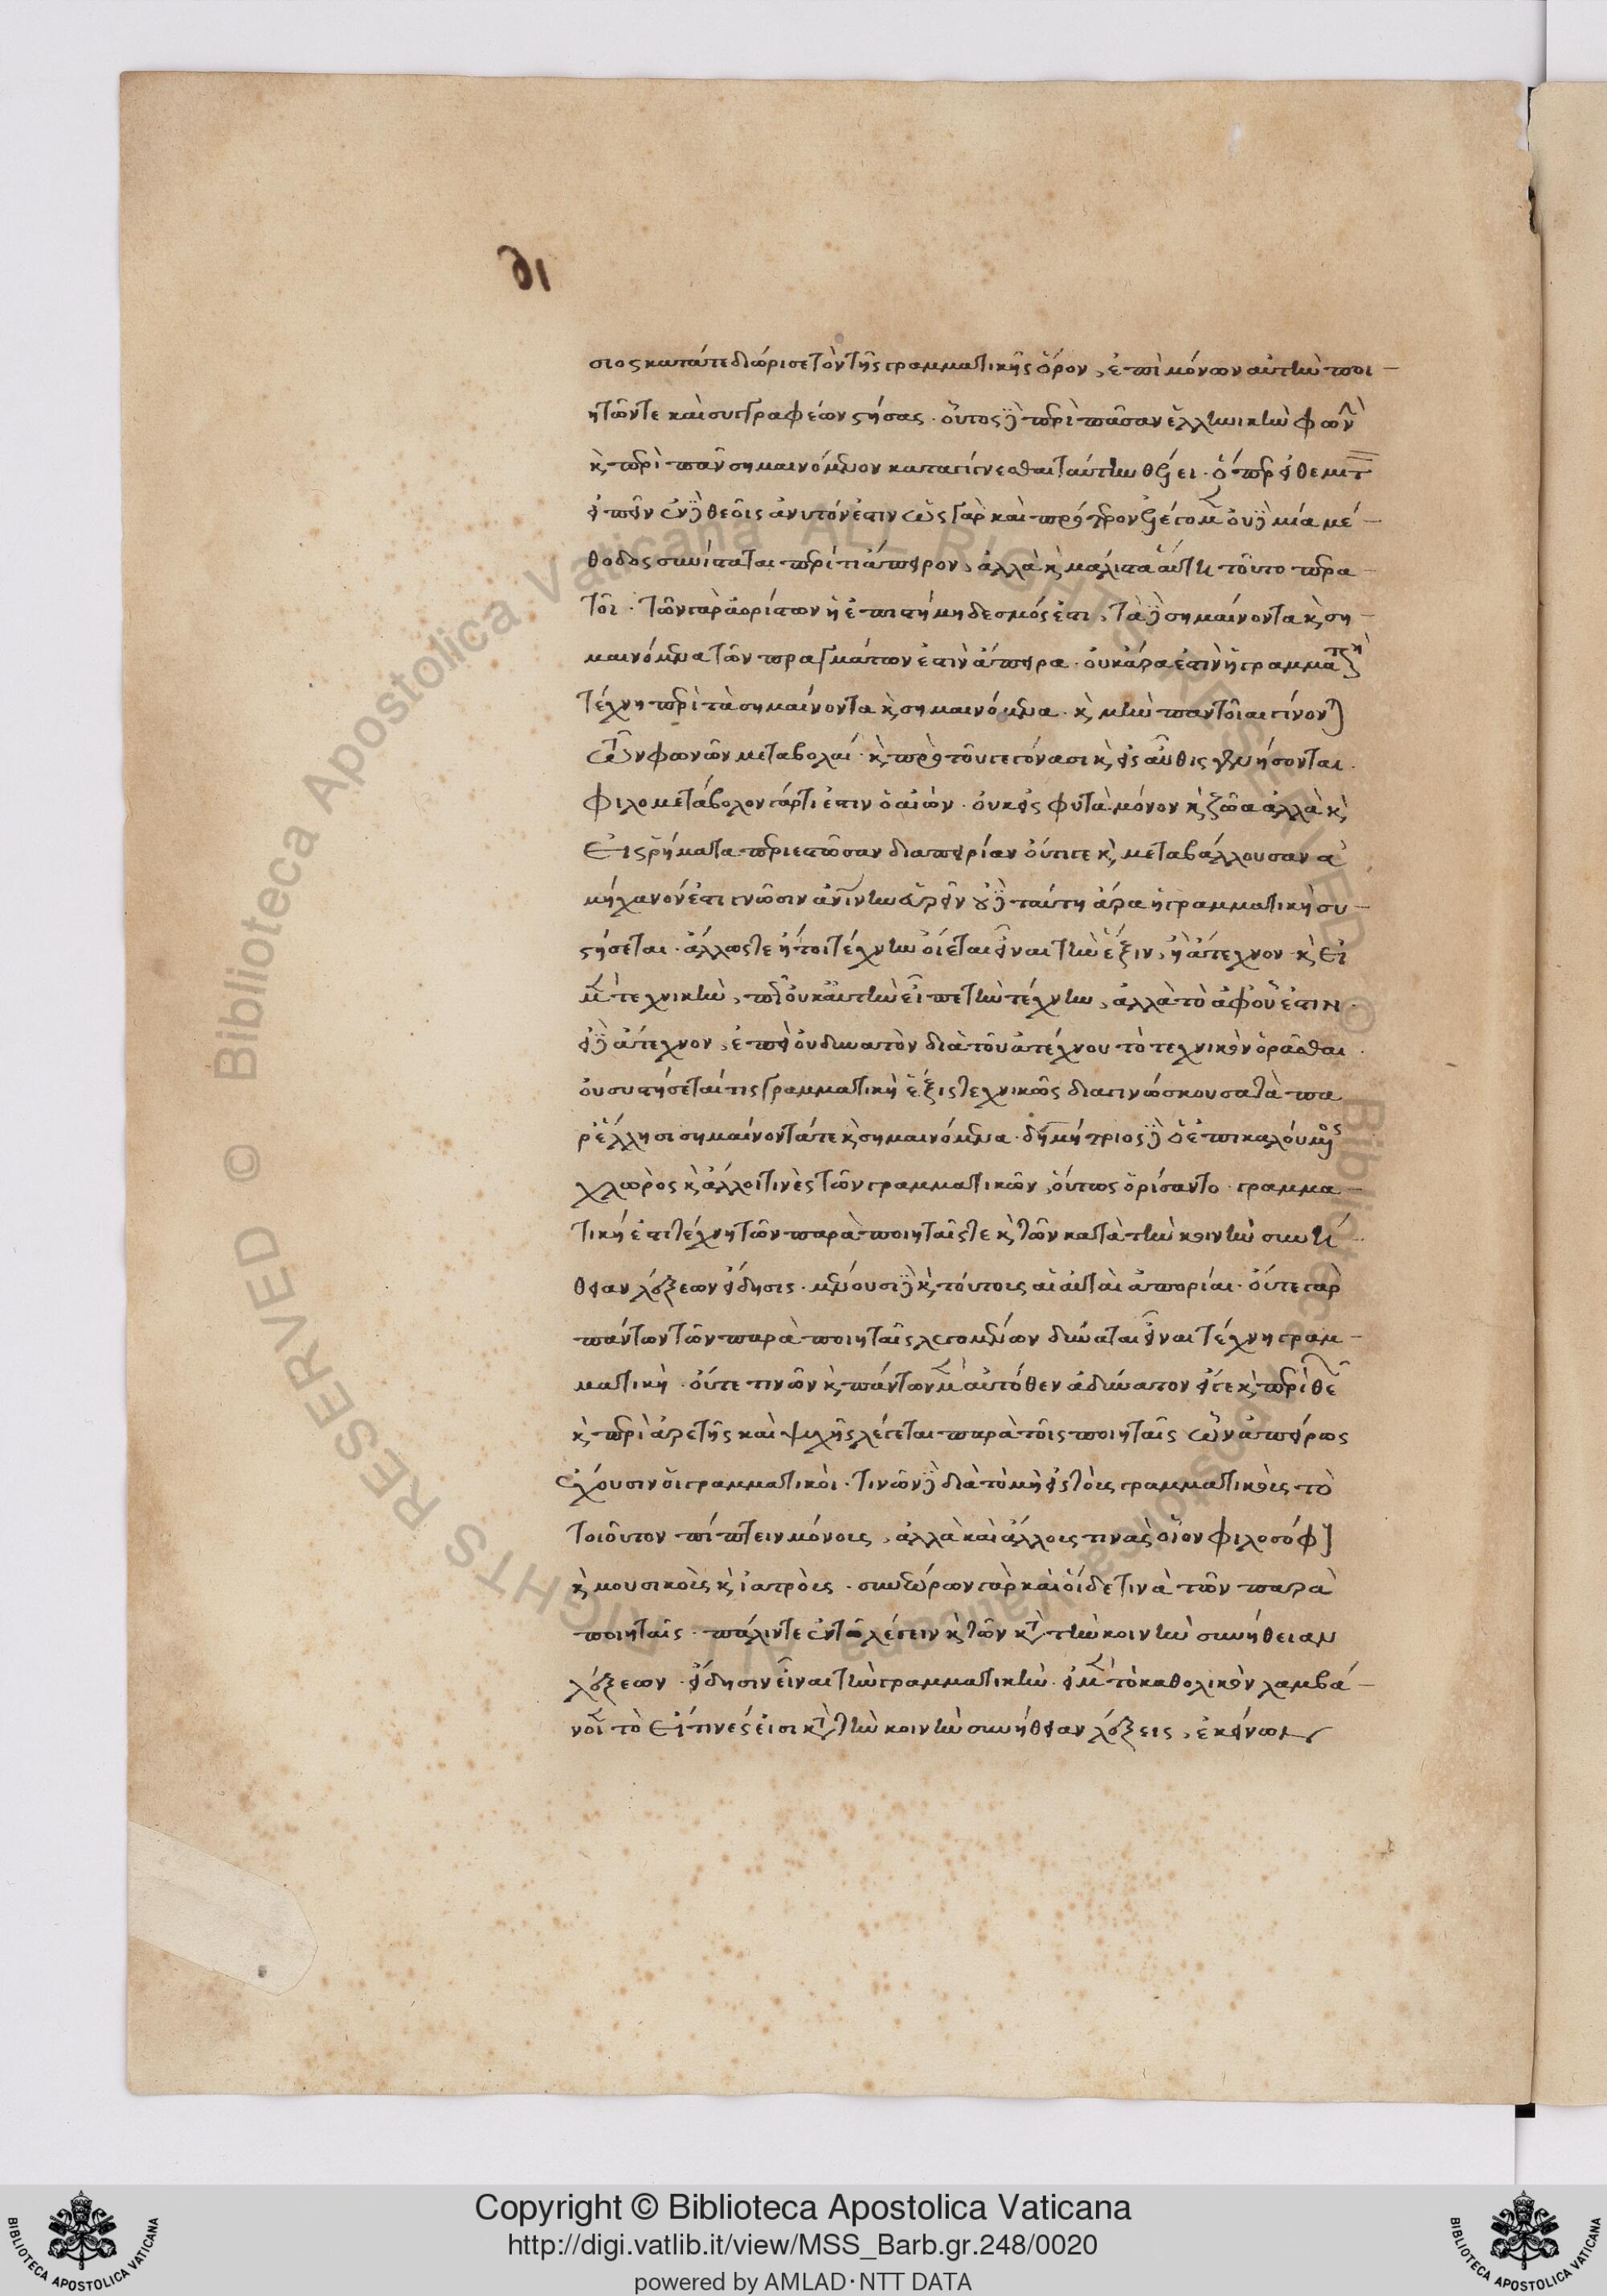 σιος κατά τε διώρισε τὸν τῆς γραμματικῆς ὅρον, ἐπὶ μόνων αὐτὴν ποι-
ητῶν τε καὶ συγγραφέων στήσας. οὗτος δὲ περὶ πᾶσαν ἑλληνικὴν φωνὴν
κ̀ περὶ πᾶν σημαινόμενον καταγίγνεσθαι ταύτην θέλει. ὅπερ εἰ θεμιτὸν
εἰπεῖν οὐδὲ θεοῖς ἀνυστόν ἐστιν ὡς γὰρ καὶ πρότερον ἐλέγομεν οὐδεμία μέ-
θοδος συνίσταται περί τι ἄπειρον, ἀλλὰ κ̀ μάλιστα αὕτη τοῦτο περα-
τοῖ. τῶν γὰρ ἀορίστων ἡ ἐπιστήμη δεσμός ἐστι, τὰ δὲ σημαίνοντα κ̀ ση-
μαινόμενα τῶν πραγμάτων ἐστὶν ἄπειρα. οὐκ ἄρα ἐστὶν ἡ γραμματικὴ
τέχνη περὶ τὰ σημαίνοντα κ̀ σημαινόμενα. κ̀ μὴν παντοῖαι γίνονται
τῶν φωνῶν μεταβολαί. κ̀ πρὸ τοῦ γεγόνασι κ̀ εἰσαῦθις γενήσονται.
φιλομετάβολον γάρ τι ἐστιν ὁ αἰών. οὐκ εἰς φυτὰ μόνον κ̀ ζῶα ἀλλὰ κ̀
εἰς ῥήματα περιεστῶσαν δι ἀπειρίαν οὔτι γε κ̀ μεταβάλλουσαν ἀ
μήχανόν ἐστι γνῶσιν ἀνθρωπίνην εὑρεῖν οὐδὲ ταύτη ἄρα ἡ γραμματικὴ συ-
στήσεται. ἄλλως τε ἤτοι τέχνην οἴεται εἶναι τὴν ἕξιν, ἢ ἄτεχνον κ̀ εἰ
μὲν τεχνικὴν, πῶς οὐκ αὐτὴν εἶπε τὴν τέχνην, ἀλλὰ τὸ ἀφ οὗ ἐστιν.
εἰ δὲ ἄτεχνον, ἐπεὶ οὐ δυνατὸν διὰ τοῦ ἀτέχνου τὸ τεχνικὸν ὁρᾶσθαι.
οὐ συστήσεταί τις γραμματικὴ ἕξις τεχνικῶς διαγινώσκουσα τὰ πα
ρ ἕλλησι σημαίνοντά τε κ̀ σημαινόμενα. δημήτριος δὲ ὁ ἐπικαλούμενος
χλωρὸς κ̀ ἄλλοι τινὲς τῶν γραμματικῶν, οὕτως ὁρίσαντο. γραμμα-
τική ἐστι τέχνη τῶν παρὰ ποιηταῖς τε κ̀ τῶν κατὰ τὴν κοινὴν συνή-
θειαν λέξεων εἴδησις. μένουσι δὲ κ̀ τούτοις αἱ αὐταὶ ἀπορίαι. οὔτε γὰρ
πάντων τῶν παρὰ ποιηταῖς λεγομένων δύναται εἶναι τέχνη γραμ-
ματικὴ. οὔτε τινῶν κ̀ πάντων μὲν αὐτόθεν ἀδύνατον εἴγε κ̀ περὶ θεῶν
κ̀ περὶ ἀρετῆς καὶ ψυχῆς λέγεται παρὰ τοῖς ποιηταῖς ὧν ἀπείρως
ἔχουσιν οἱ γραμματικοὶ. τινῶν δὲ διὰ τὸ μὴ εἰς τοὺς γραμματικοὺς τὸ
τοιοῦτον πίπτειν μόνους, ἀλλὰ καὶ ἄλλους τινὰς οἷον φιλοσόφους
κ̀ μουσικοὺς κ̀ ἰατροὺς. συνεώρων γὰρ καὶ οἵδε τινὰ τῶν παρὰ
ποιηταῖς. πάλιν τε ἐν τῷ λέγειν κ̀ τῶν κατὰ τὴν κοινὴν συνήθειαν
λέξεων. εἴδησιν εἶναι τὴν γραμματικὴν. εἰ μὲν τὸ καθολικὸν λαμβά-
νοι τὸ εἴ τινές εἰσι κατὰ τὴν κοινὴν συνήθειαν λέξεις, ἐκείνων